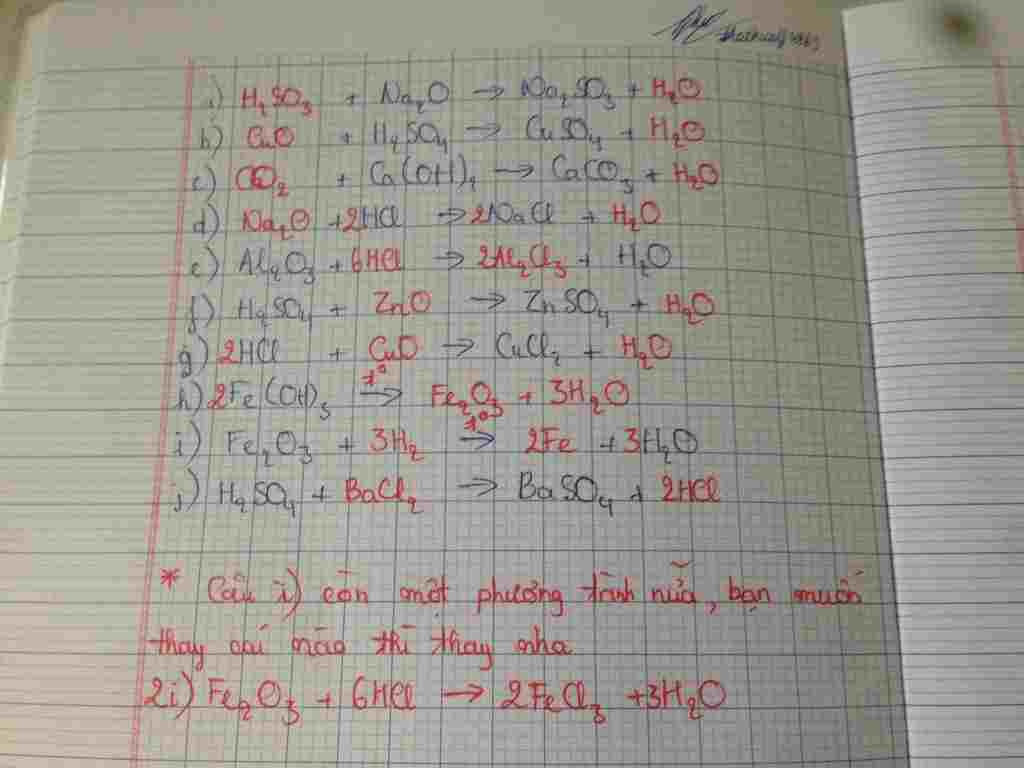 a) H₂SO₃ + Na₂O → Na₂SO₃ + H₂O
b) CuO + H₂SO₄ → CuSO₄ + H₂O
c) CO₂ + Ca(OH)₂ → CaCO₃ + H₂O
d) Na₂O + 2HCl → 2NaCl + H₂O
e) Al₂O₃ + 6HCl → 2Al₂Cl₃ + H₂O
f) H₂SO₄ + ZnO → ZnSO₄ + H₂O
g) 2HCl + CuO → CuCl₂ + H₂O
h) 2Fe(OH)₃ t°→ Fe₂O₃ + 3H₂O
i) Fe₂O₃ + 3H₂ t°→ 2Fe + 3H₂O
j) H₂SO₄ + BaCl₂ → BaSO₄ + 2HCl
* Câu i) còn một phương trình nữa, bạn muốn
thay cái nào thì thay nha
2i) Fe₂O₃ + 6HCl → 2FeCl₃ + 3H₂O